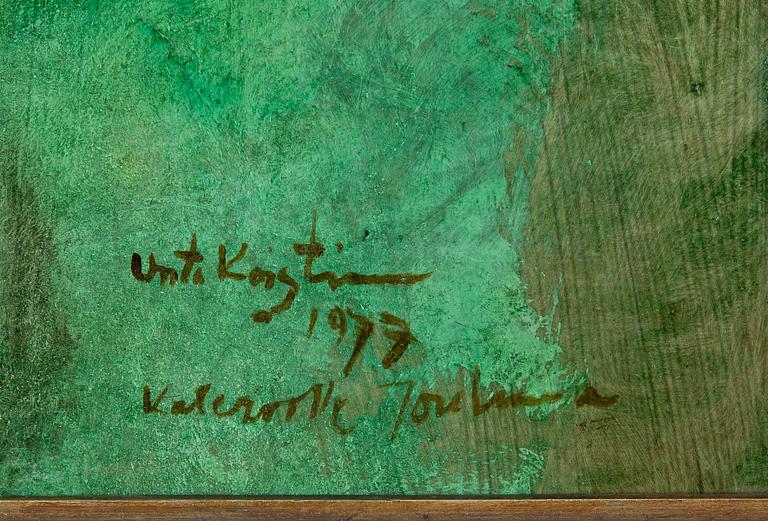 Unto Koistinen
1977
Kalervolle Jouluna